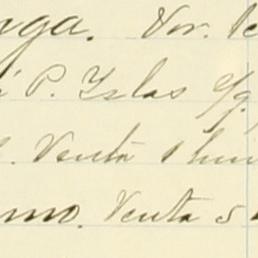 nga. Vor.
P. Yslas c/g
Venta 1
mo. Venta 5